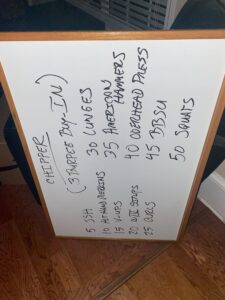 CHIPPER
(3 BURPEE BUY-IN)
5 SSH
10 MERKINS
15 V-UPS
20 WWII SITUPS
25 CURLS
30 LUNGES
35 AMERICAN
HAMMERS
40 OVERHEAD PRESS
45 BBSU
50 SQUATS